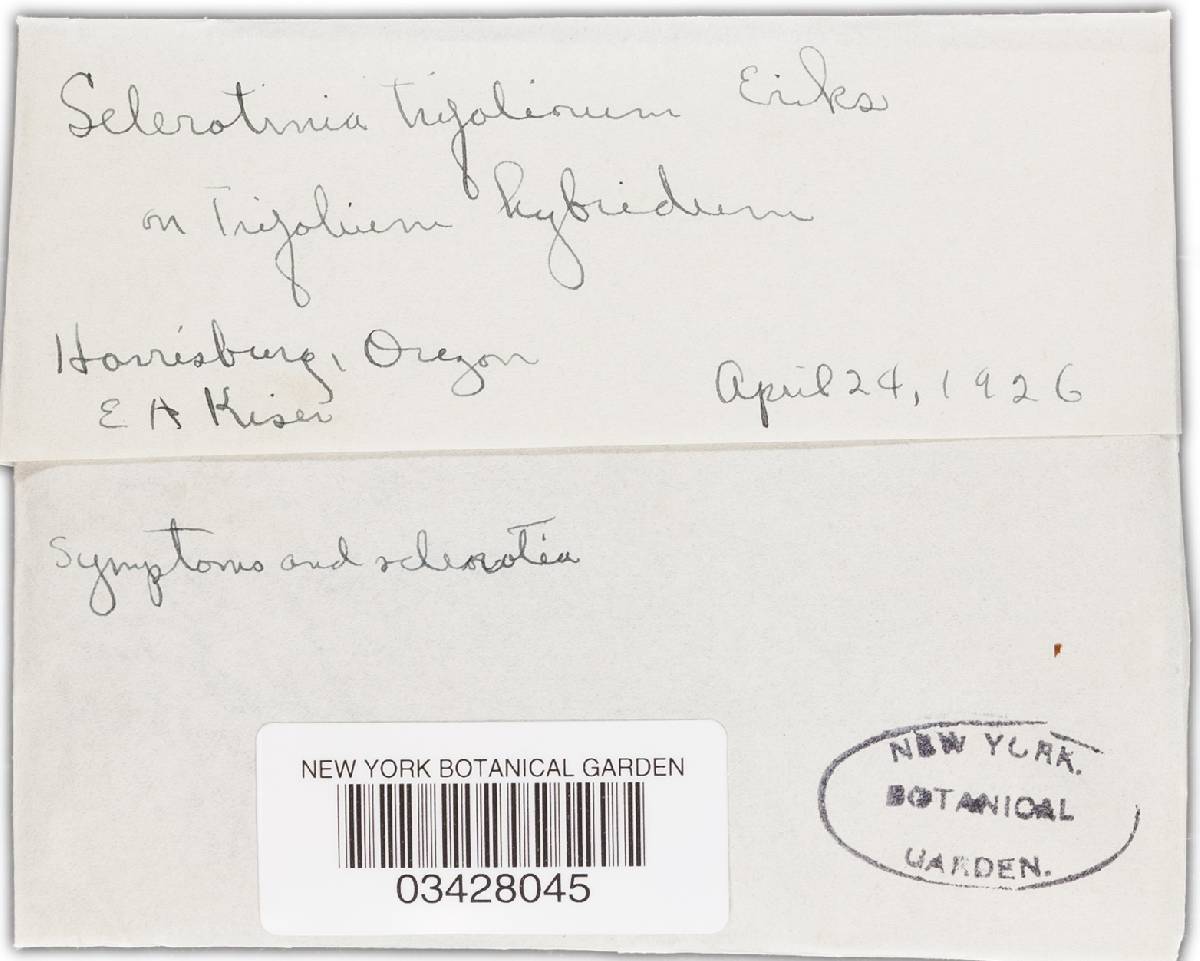 Sclerotinia trifoliorum Eriks
on Trifolium hybridum
Harrisburg, Oregon
E A Kiser
April 24, 1926
Symptoms and sclerotia
NEW YORK BOTANICAL GARDEN
03428045
NEW YORK.
BOTANICAL
GARDEN.